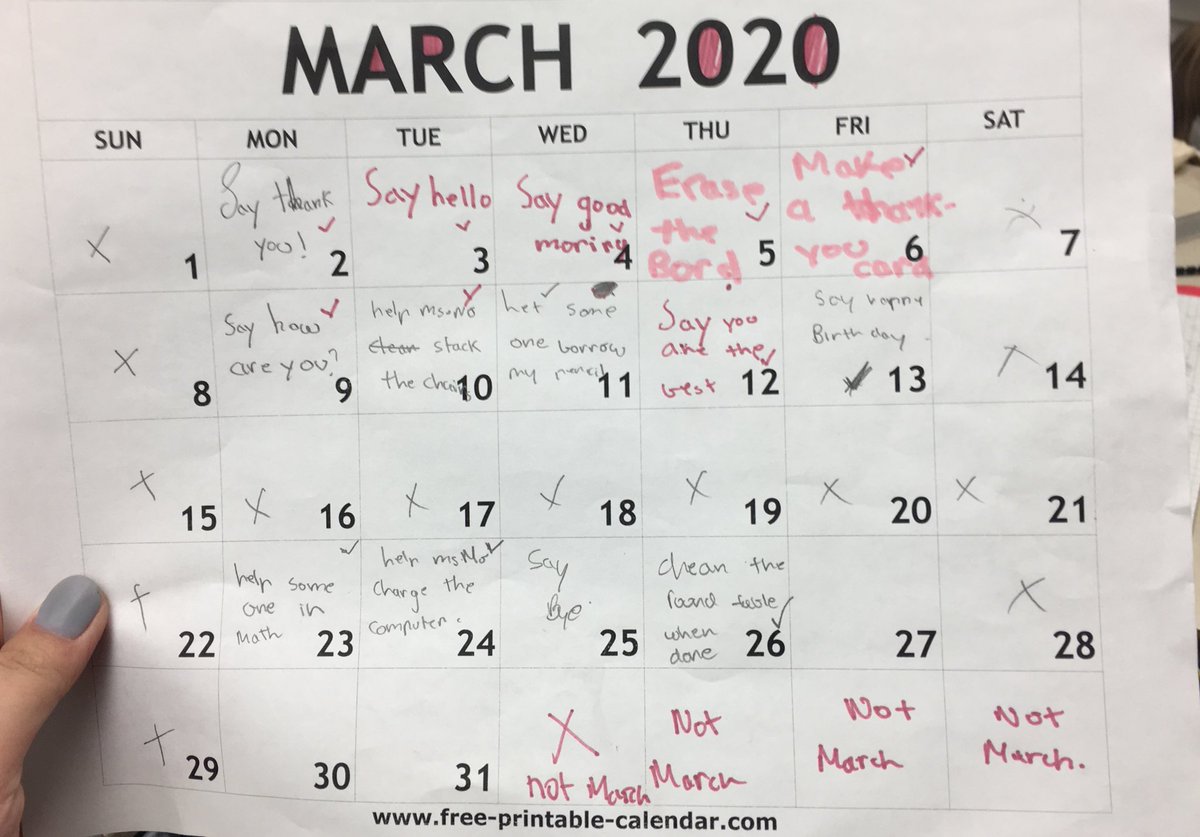 MARCH 2020
SUN MON TUE WED THU FRI SAT
1
Say thank
you!
2
Say hello
3
Say good
moring
4
Erase
the
Bord
5
Make
a thank-
you
card
6
7
8
Say how
are you?
9
help ms.No
clean stack
the chairs
10
let some
one borrow
my pencil
11
Say you
are the
best
12
Say happy
Birthday
13
14
15
16
17
18
19
20
21
22
help some
one in
Math
23
help ms.No
charge the
computer.
24
Say
Bye
25
clean the
table
when
done
26
27
28
29
30
31
not March
Not
March
Not
March
Not
March.
www.free-printable-calendar.com